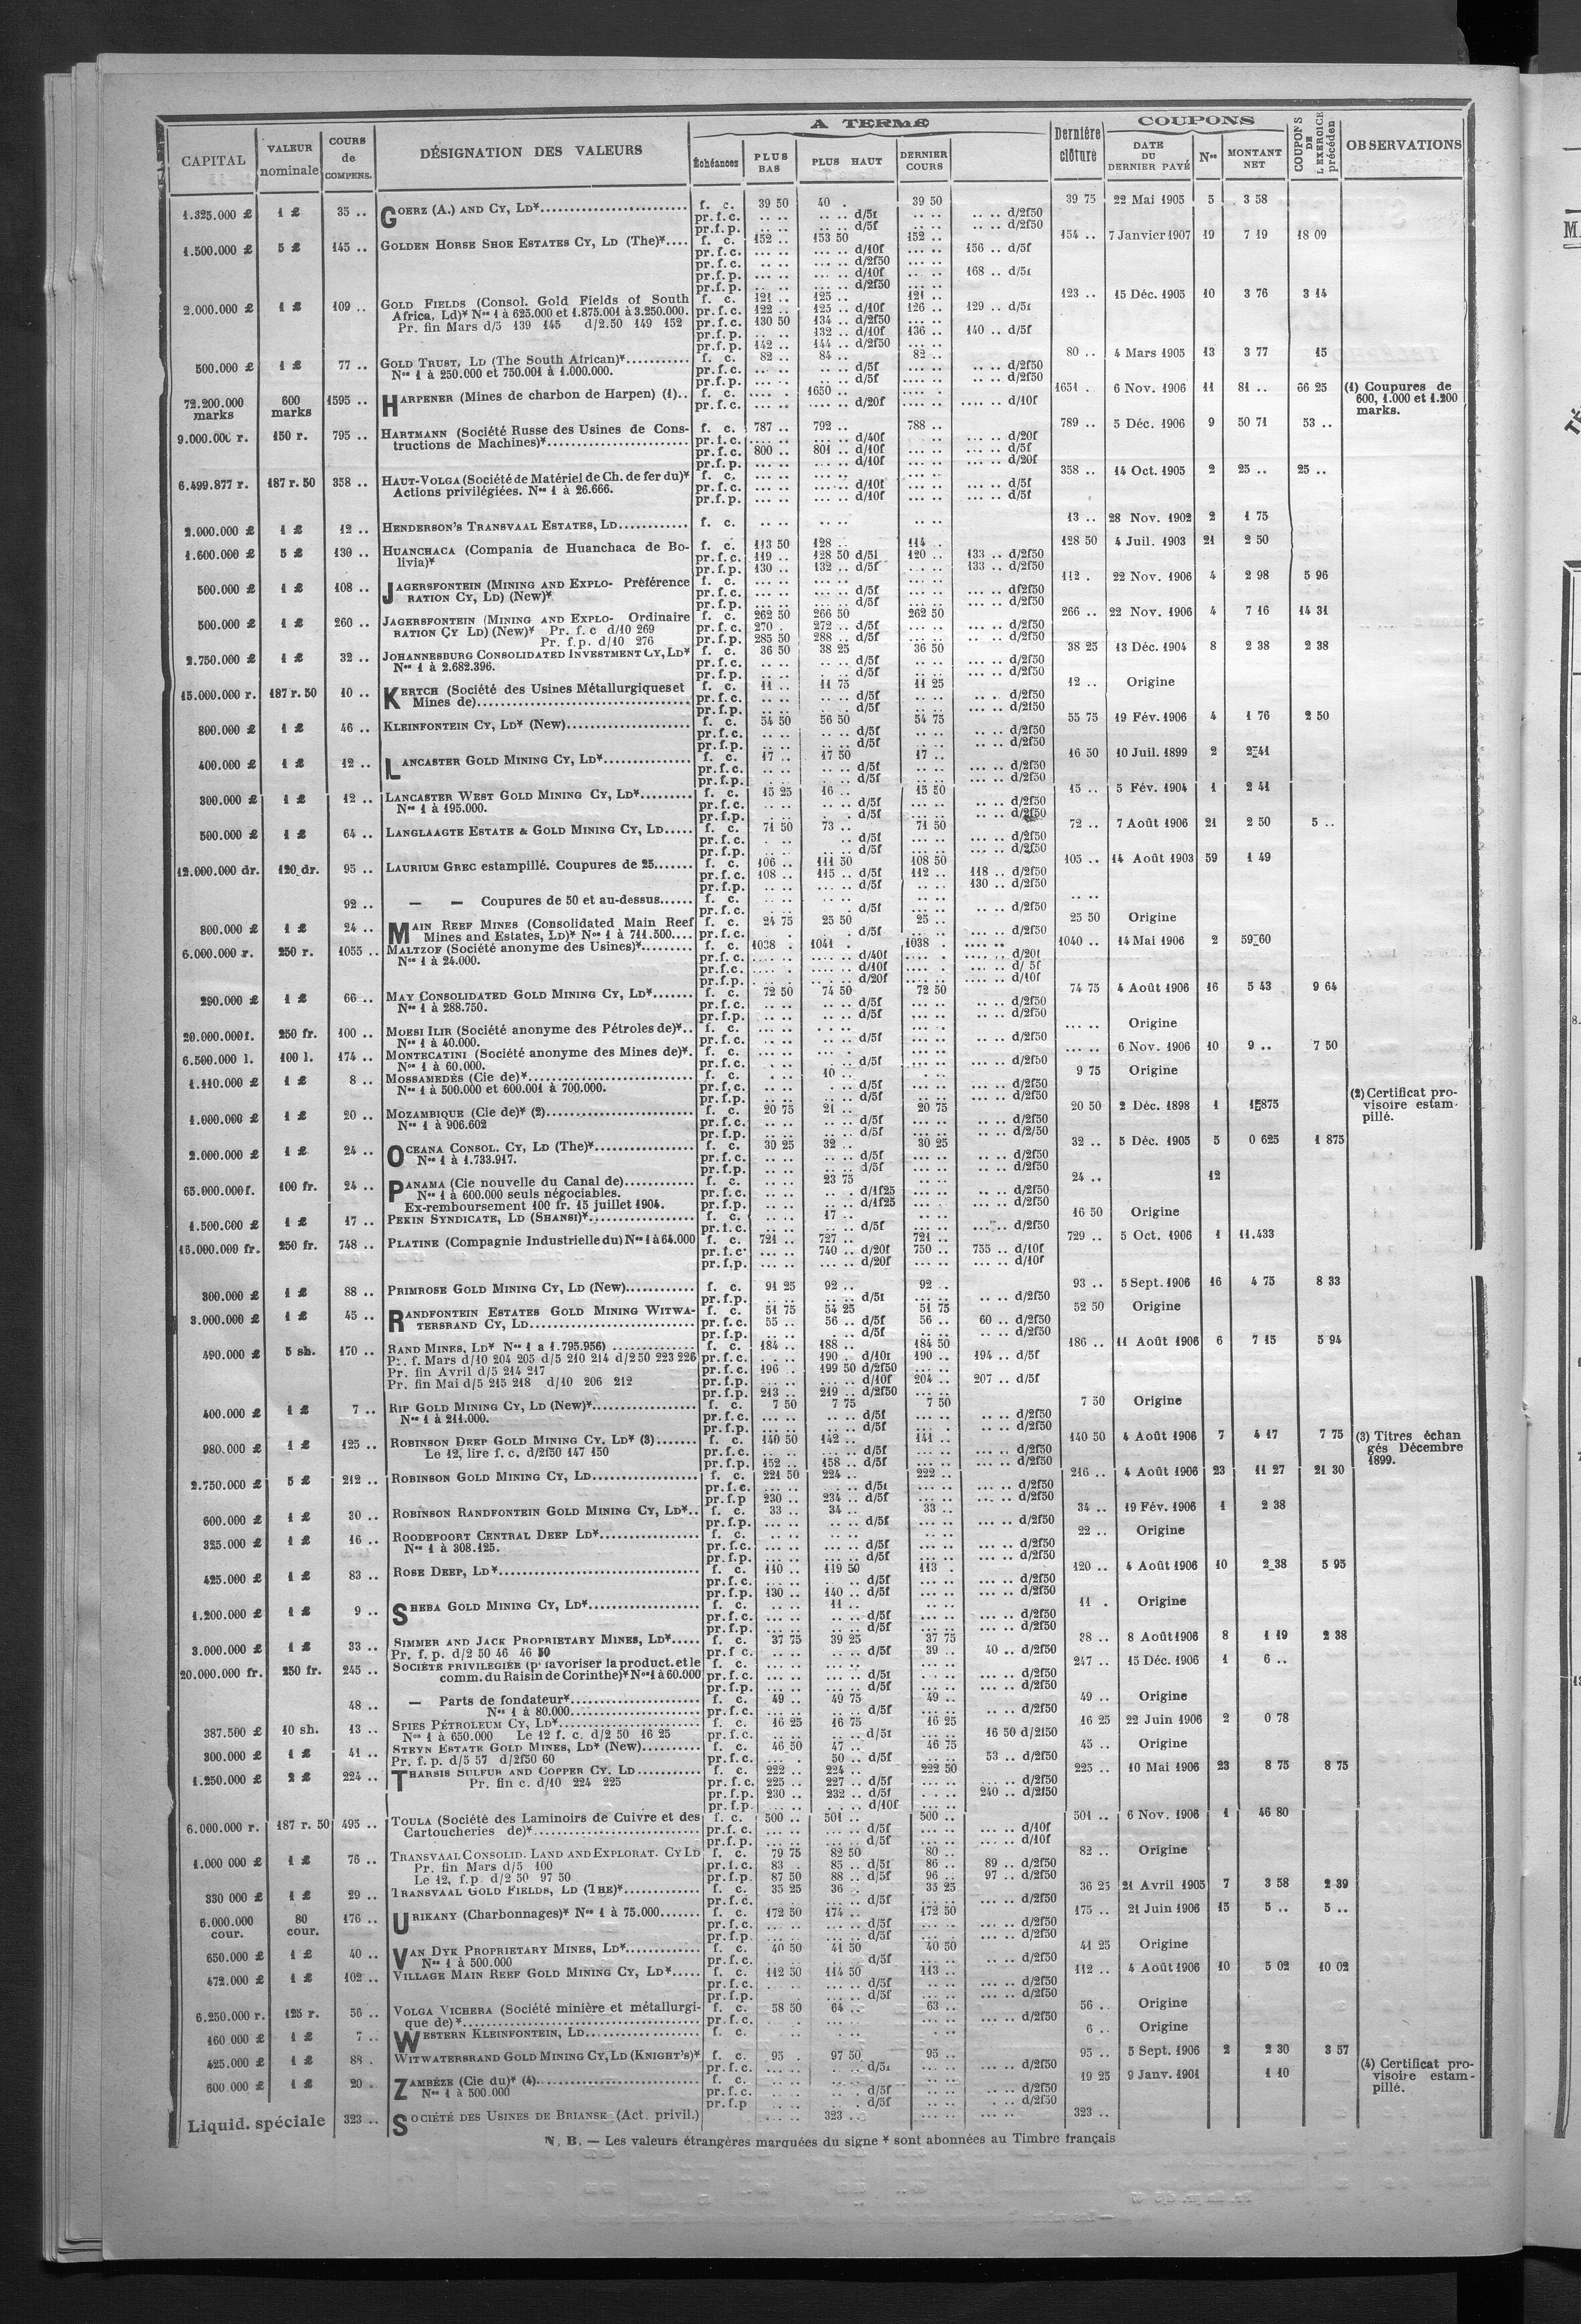 CAPITAL VALEUR nominale COURS de COMPENS. DÉSIGNATION DES VALEURS A TERME Échéances PLUS BAS PLUS HAUT DERNIER COURS Dernière clôture COUPONS DATE DU DERNIER PAYÉ Nos MONTANT NET COUPONS DE L'EXERCICE précéden OBSERVATIONS
1.325.000 £ 1 £ 35 .. GOERZ (A.) AND CY, LD*.... f. c. 39 50 40 . 39 50 39 75 22 Mai 1905 5 3 58
pr.f.c. .. .. .. .. d/5f .. .. .. .. d/2f50
pr.f.p. .. .. .. .. d/5f .. .. .. .. d/2f50
1.500.000 £ 5 £ 145 .. GOLDEN HORSE SHOE ESTATES CY, LD (The)*.... f. c. 152 .. 153 50 152 .. 154 .. 7 Janvier 1907 19 7 19 18 09
pr.f.c. ... .. ... .. d/10f ... .. 156 .. d/5f
pr.f.c. ... .. ... .. d/2f50 ... ..
pr.f.p. ... .. ... .. d/10f ... .. 168 .. d/5f
pr.f.p. ... .. ... .. d/2f50 ... ..
2.000.000 £ 1 £ 109 .. GOLD FIELDS (Consol. Gold Fields of South f. c. 121 .. 125 .. 121 .. 123 .. 15 Déc. 1905 10 3 76 3 14
Africa, Ld)* Nos 1 à 625.000 et 1.875.001 à 3.250.000. pr.f.c. 122 .. 125 .. d/10f 126 .. 129 .. d/5f
Pr. fin Mars d/5 139 145 d/2.50 149 152 pr.f.c. 130 50 134 .. d/2f50 ... ..
pr.f.p. ... .. 132 .. d/10f 136 .. 140 .. d/5f
pr.f.p. 142 .. 144 .. d/2f50 ... ..
500.000 £ 1 £ 77 .. GOLD TRUST, LD (The South African)*.... f. c. 82 .. 84 .. 82 .. 80 .. 4 Mars 1905 13 3 77 15
Nos 1 à 250.000 et 750.001 à 1.000.000. pr.f.c. ... .. .. .. d/5f ... .. .. .. d/2f50
pr.f.p. ... .. .. .. d/5f ... .. .. .. d/2f50
72.200.000 marks 600 marks 1595 .. HARPENER (Mines de charbon de Harpen) (1).. f. c. .... . 1650 .. .... .. 1651 . 6 Nov. 1906 11 81 .. 66 25 (1) Coupures de 600, 1.000 et 1.200 marks.
pr.f.c. .... .. .... .. d/20f .... .. .... .. d/10f
9.000.000 r. 150 r. 795 .. HARTMANN (Société Russe des Usines de Cons- f. c. 787 .. 792 .. 788 .. 789 .. 5 Déc. 1906 9 50 71 53 ..
tructions de Machines)*.... pr.f.c. ... .. ... .. d/40f ... .. ... .. d/20f
pr.f.c. 800 .. 801 .. d/10f ... .. ... .. d/5f
pr.f.p. ... .. ... .. d/10f ... .. ... .. d/20f
6.499.877 r. 187 r. 50 358 .. HAUT-VOLGA (Société de Matériel de Ch. de fer du)* f. c. ... .. ... .. ... .. 358 .. 14 Oct. 1905 2 25 .. 25 ..
Actions privilégiées. Nos 1 à 26.666. pr.f.c. ... .. ... .. d/10f ... .. ... .. d/5f
pr.f.p. ... .. ... .. d/10f ... .. ... .. d/5f
2.000.000 £ 1 £ 12 .. HENDERSON'S TRANSVAAL ESTATES, LD.... f. c. .. .. .. .. .. .. 13 .. 28 Nov. 1902 2 1 75
1.600.000 £ 5 £ 130 .. HUANCHACA (Compania de Huanchaca de Bo- f. c. 113 50 128 .. 114 .. 128 50 4 Juil. 1903 21 2 50
livia)* pr.f.c. 119 .. 128 50 d/5f 120 .. 133 .. d/2f50
pr.f.p. 130 .. 132 .. d/5f ... .. 133 .. d/2f50
500.000 £ 1 £ 108 .. JAGERSFONTEIN (MINING AND EXPLO- Préférence f. c. ... .. ... .. ... .. 112 . 22 Nov. 1906 4 2 98 5 96
RATION CY, LD) (New)* pr.f.c. ... .. ... .. d/5f ... .. ... .. d/2f50
pr.f.p. ... .. ... .. d/5f ... .. ... .. d/2f50
500.000 £ 1 £ 260 .. JAGERSFONTEIN (MINING AND EXPLO- Ordinaire f. c. 262 50 266 50 262 50 266 .. 22 Nov. 1906 4 7 16 14 31
RATION CY LD) (New)* Pr. f. c d/10 269 pr.f.c. 270 . 272 .. d/5f ... .. ... .. d/2f50
Pr. f.p. d/10 276 pr.f.p. 285 50 288 .. d/5f ... .. ... .. d/2f50
2.750.000 £ 1 £ 32 .. JOHANNESBURG CONSOLIDATED INVESTMENT CY, LD* f. c. 36 50 38 25 36 50 38 25 13 Déc. 1904 8 2 38 2 38
Nos 1 à 2.682.396. pr.f.c. .. .. .. .. d/5f .. .. ... .. d/2f50
pr.f.p. .. .. .. .. d/5f .. .. ... .. d/2f50
15.000.000 r. 187 r. 50 10 .. KERTCH (Société des Usines Métallurgiques et f. c. 11 .. 11 75 11 25 12 .. Origine
Mines de).... pr.f.c. .. .. .. .. d/5f .. .. .. .. d/2f50
pr.f.p. .. .. .. .. d/5f .. .. .. .. d/2f50
800.000 £ 1 £ 46 .. KLEINFONTEIN CY, LD* (New).... f. c. 54 50 56 50 54 75 55 75 19 Fév. 1906 4 1 76 2 50
pr.f.c. .. .. .. .. d/5f .. .. .. .. d/2f50
pr.f.p. .. .. .. .. d/5f .. .. .. .. d/2f50
400.000 £ 1 £ 12 .. LANCASTER GOLD MINING CY, LD*.... f. c. 17 .. 17 50 17 .. 16 50 10 Juil. 1899 2 2 41
pr.f.c. .. .. .. .. d/5f .. .. ... .. d/2f50
pr.f.p. .. .. .. .. d/5f .. .. ... .. d/2f50
300.000 £ 1 £ 12 .. LANCASTER WEST GOLD MINING CY, LD*.... f. c. 15 25 16 .. 15 50 15 .. 5 Fév. 1904 1 2 41
Nos 1 à 195.000. pr.f.c. .. .. .. .. d/5f .. .. .. .. d/2f50
pr.f.p. .. .. . .. d/5f .. .. .. .. d/2f50
500.000 £ 1 £ 64 .. LANGLAAGTE ESTATE & GOLD MINING CY, LD.... f. c. 71 50 73 .. 71 50 72 .. 7 Août 1906 21 2 50 5 ..
pr.f.c. . .. .. d/5f .. .. ... .. d/2f50
pr.f.p. .. .. .. .. d/5f .. .. ... .. d/2f50
12.000.000 dr. 120 dr. 95 .. LAURIUM GREC estampillé. Coupures de 25.... f. c. 106 .. 111 50 108 50 105 .. 14 Août 1903 59 1 49
pr.f.c. 108 .. 115 .. d/5f 112 .. 118 .. d/2f50
pr.f.p. .. .. .. .. d/5f .. .. 130 .. d/2f50
92 .. — — Coupures de 50 et au-dessus.... f. c. .. .. .. .. .. .. .. ..
pr.f.c. .. .. . d/5f ... .. .. .. d/2f50
800.000 £ 1 £ 24 .. MAIN REEF MINES (Consolidated Main Reef f. c. 24 75 25 50 25 .. 25 50 Origine
Mines and Estates, LD)* Nos 1 à 711.500.... pr.f.c. .. .. . d/5f ... .. .. .. d/2f50
6.000.000 r. 250 r. 1055 .. MALTZOF (Société anonyme des Usines)*.... f. c. 1038 . 1041 . 1038 . .... .. 1040 .. 14 Mai 1906 2 59 60
Nos 1 à 24.000. pr.f.c. .... .. .... .. d/40f .... .. .... .. d/20f
pr.f.c. .... . .... .. d/10f .... . .... .. d/ 5f
pr.f.p. .... . .... .. d/20f .... .. .... .. d/10f
290.000 £ 1 £ 66 .. MAY CONSOLIDATED GOLD MINING CY, LD*.... f. c. 72 50 74 50 72 50 74 75 4 Août 1906 16 5 43 9 64
Nos 1 à 288.750. pr.f.c. .. .. .. .. d/5f .. .. .. .. d/2f50
pr.f.p. .. .. .. .. d/5f .. .. .. .. d/2f50
20.000.000 f. 250 fr. 100 .. MOESI ILIR (Société anonyme des Pétroles de)*.. f. c. ... .. . .. .. ... .. ... .. Origine
Nos 1 à 40.000. pr.f.c. ... .. ... .. d/5f ... .. ... .. d/2f50
6.500.000 l. 100 l. 174 .. MONTECATINI (Société anonyme des Mines de)*. f. c. ... .. ... . ... .. ... .. 6 Nov. 1906 10 9 .. 7 50
Nos 1 à 60.000. pr.f.c. ... .. .. d/5f ... .. ... .. d/2f50
1.110.000 £ 1 £ 8 .. MOSSAMEDÈS (Cie de)*.... f. c. . .. 10 .. .. .. 9 75 Origine
Nos 1 à 500.000 et 600.001 à 700.000. pr.f.c. .. .. .. .. d/5f .. .. .. .. d/2f50
pr.f.p. .. .. .. .. d/5f .. .. .. .. d/2f50
1.000.000 £ 1 £ 20 .. MOZAMBIQUE (Cie de)* (2).... f. c. 20 75 21 .. 20 75 20 50 2 Déc. 1898 1 1 875 (2) Certificat provisoire estampillé.
Nos 1 à 906.602 pr.f.c. .. .. .. .. d/5f .. .. .. .. d/2f50
pr.f.p. .. .. .. .. d/5f .. .. .. .. d/2/50
2.000.000 £ 1 £ 24 .. OCEANA CONSOL. CY, LD (The)*.... f. c. 30 25 32 .. 30 25 32 .. 5 Déc. 1905 5 0 625 1 875
Nos 1 à 1.733.917. pr.f.c. .. .. .. .. d/5f .. .. .. .. d/2f50
pr.f.p. .. .. .. .. d/5f .. .. .. .. d/2f50
65.000.000 f. 100 fr. 24 .. PANAMA (Cie nouvelle du Canal de).... f. c. .. .. 23 75 .. .. 24 .. 12
Nos 1 à 600.000 seuls négociables. pr.f.c. .. .. .. .. d/1f25 ... .. .. .. d/2f50
Ex-remboursement 100 fr. 15 juillet 1904. pr.f.p. .. .. .. .. d/1f25 ... .. .. .. d/2f50
1.500.000 £ 1 £ 17 .. PEKIN SYNDICATE, LD (SHANSI)*.... f. c. .. .. 17 .. .. .. 16 50 Origine
pr.f.c. .. .. .. .. d/5f ... .. ... .. d/2f50
15.000.000 fr. 250 fr. 748 .. PLATINE (Compagnie Industrielle du) Nos 1 à 64.000 f. c. 721 .. 727 .. 721 .. 729 .. 5 Oct. 1906 1 11.433
pr.f.c. ... .. 740 .. d/20f 750 .. 755 .. d/10f
pr.f.p. ... .. ... .. d/20f ... .. ... .. d/10f
300.000 £ 1 £ 88 .. PRIMROSE GOLD MINING CY, LD (New).... f. c. 91 25 92 .. 92 .. 93 .. 5 Sept. 1906 16 4 75 8 33
pr.f.p. .. .. .. .. d/5f .. .. .. .. d/2f50
3.000.000 £ 1 £ 45 .. RANDFONTEIN ESTATES GOLD MINING WITWA- f. c. 51 75 54 25 51 75 52 50 Origine
TERSRAND CY, LD.... pr.f.c. 55 .. 56 .. d/5f 56 .. 60 .. d/2f50
pr.f.p. .. .. .. .. d/5f .. .. .. .. d/2f50
490.000 £ 5 sh. 170 .. RAND MINES, LD* Nos 1 a 1.795.956) .... f. c. 184 .. 188 .. 184 50 186 .. 11 Août 1906 6 7 15 5 94
Pr. f. Mars d/10 204 205 d/5 210 214 d/2 50 223 226 pr.f.c. ... . 190 . d/10f 190 .. 194 .. d/5f
Pr. fin Avril d/5 214 217 pr.f.c. 196 . 199 50 d/2f50 ... ..
Pr. fin Mai d/5 215 218 d/10 206 212 pr.f.p. ... .. ... .. d/10f 204 .. 207 .. d/5f
pr.f.p. 213 .. 219 .. d/2f50 ... ..
400.000 £ 1 £ 7 .. RIP GOLD MINING CY, LD (New)*.... f. c. 7 50 7 75 7 50 7 50 Origine
Nos 1 à 211.000. pr.f.c. ... .. .. .. d/5f ... .. .. .. d/2f50
pr.f.p. ... .. .. .. d/5f ... .. .. .. d/2f50
980.000 £ 1 £ 125 .. ROBINSON DEEP GOLD MINING CY, LD* (3).... f. c. 140 50 142 .. 141 .. 140 50 4 Août 1906 7 4 17 7 75 (3) Titres échangés Décembre 1899.
Le 12, lire f. c. d/2f50 147 150 pr.f.c. ... .. ... .. d/5f ... .. ... .. d/2f50
pr.f.p. 152 .. 158 .. d/5f ... .. ... .. d/2f50
2.750.000 £ 5 £ 212 .. ROBINSON GOLD MINING CY, LD.... f. c. 221 50 224 .. 222 .. 216 .. 4 Août 1906 23 11 27 21 30
pr.f.c. ... .. ... .. d/5f ... .. ... .. d/2f50
pr.f.p 230 .. 234 .. d/5f ... .. ... .. d/2f50
600.000 £ 1 £ 30 .. ROBINSON RANDFONTEIN GOLD MINING CY, LD*.. f. c. 33 .. 34 .. 33 .. 34 .. 19 Fév. 1906 1 2 38
pr.f.p. ... .. ... .. d/5f ... .. ... .. d/2f50
325.000 £ 1 £ 16 .. ROODEPOORT CENTRAL DEEP LD*.... f. c. ... .. ... .. ... .. 22 .. Origine
Nos 1 à 308.125. pr.f.c. ... .. ... .. d/5f ... .. ... .. d/2f50
pr.f.p. ... .. ... .. d/5f ... .. ... .. d/2f50
425.000 £ 1 £ 83 .. ROSE DEEP, LD*.... f. c. 110 .. 119 50 113 . 120 .. 4 Août 1906 10 2 38 5 95
pr.f.c. ... .. .. .. d/5f ... .. ... .. d/2f50
pr.f.p. 130 .. 140 .. d/5f ... .. ... .. d/2f50
1.200.000 £ 1 £ 9 .. SHEBA GOLD MINING CY, LD*.... f. c. .. .. 11 .. ... .. 11 . Origine
pr.f.c. ... .. ... .. d/5f ... .. ... .. d/2f50
pr.f.p. ... .. ... .. d/5f ... .. ... .. d/2f50
3.000.000 £ 1 £ 33 .. SIMMER AND JACK PROPRIETARY MINES, LD*.... f. c. 37 75 39 25 37 75 38 .. 8 Août 1906 8 1 19 2 38
Pr. f. p. d/2 50 46 46 50 pr.f c. ... .. ... .. d/5f 39 .. 40 .. d/2f50
20.000.000 fr. 250 fr. 245 .. SOCIÉTÉ PRIVILÉGIÉE (pr favoriser la product. et le f. c. ... .. ... .. ... .. 247 .. 15 Déc. 1906 1 6 ..
comm. du Raisin de Corinthe)* Nos 1 à 60.000 pr.f.c. ... .. ... .. d/5f ... .. ... .. d/2f50
pr.f.p. ... .. ... .. d/5f ... .. ... .. d/2f50
48 .. — Parts de fondateur*.... f. c. 49 .. 49 75 49 .. 49 .. Origine
Nos 1 à 80.000.... pr.f.c. ... .. ... .. d/5f ... .. .. .. d/2f50
387.500 £ 10 sh. 13 .. SPIES PÉTROLEUM CY, LD*.... f. c. 16 25 16 75 16 25 16 25 22 Juin 1906 2 0 78
Nos 1 à 650.000 Le 12 f. c. d/2 50 16 25 pr.f.c. .. .. .. .. d/5f ... .. 16 50 d/2f50
300.000 £ 1 £ 41 .. STEYN ESTATE GOLD MINES, LD* (New).... f. c. 46 50 47 .. 46 75 45 .. Origine
Pr. f. p. d/5 57 d/2f50 60 pr.f.c. ... . 50 .. d/5f .. .. 53 .. d/2f50
1.250.000 £ 2 £ 224 .. THARSIS SULFUR AND COPPER CY. LD.... f. c. 222 .. 224 .. 222 50 225 .. 10 Mai 1906 23 8 75 8 75
Pr. fin c. d/10 224 225 pr.f.c. 225 .. 227 .. d/5f ... .. ... .. d/2f50
pr.f.p. 230 .. 232 .. d/5f ... .. 240 .. d/2f50
pr.f.p. ... .. . .. d/10f ... ..
6.000.000 r. 187 r. 50 495 .. TOULA (Société des Laminoirs de Cuivre et des f. c. 500 .. 501 .. 500 .. 501 .. 6 Nov. 1906 1 46 80
Cartoucheries de)*.... pr.f.c. ... .. ... .. d/5f ... .. ... .. d/10f
pr.f.p. ... .. ... .. d/5f ... .. ... .. d/10f
1.000 000 £ 1 £ 76 .. TRANSVAAL CONSOLID. LAND AND EXPLORAT. CY LD f. c. 79 75 82 50 80 .. 82 .. Origine
Pr. fin Mars d/5 100 pr.f.c. 83 . 85 .. d/5f 86 .. 89 .. d/2f50
Le 12, f.p d/2 50 97 50 pr.f.p. 87 50 88 .. d/5f 96 .. 97 .. d/2f50
330 000 £ 1 £ 29 .. TRANSVAAL GOLD FIELDS, LD (THE)*.... f. c. 35 25 36 . 35 25 36 25 21 Avril 1905 7 3 58 2 39
pr.f.c. ... .. ... .. d/5f ... .. ... .. d/2f50
6.000.000 cour. 80 cour. 176 .. URIKANY (Charbonnages)* Nos 1 à 75.000.... f. c. 172 50 174 .. 172 50 175 .. 21 Juin 1906 15 5 .. 5 ..
pr.f.c. ... .. ... .. d/5f ... .. ... .. d/2f50
pr.f.p. ... .. ... .. d/5f ... .. ... .. d/2f50
650.000 £ 1 £ 40 .. VAN DYK PROPRIETARY MINES, LD*.... f. c. 40 50 41 50 40 50 41 25 Origine
Nos 1 à 500.000 pr.f.c. ... .. ... .. d/5f ... .. .. .. d/2f50
472.000 £ 1 £ 102 .. VILLAGE MAIN REEF GOLD MINING CY, LD*.... f. c. 112 50 114 50 113 .. 112 .. 4 Août 1906 10 5 02 10 02
pr.f.c. ... .. ... .. d/5f ... .. ... .. d/2f50
pr.f.p. ... .. ... .. d/5f ... .. ... .. d/2f50
6.250.000 r. 125 r. 56 .. VOLGA VICHERA (Société minière et métallurgi- f. c. 58 50 64 .. 63 .. 56 .. Origine
que de)*.... pr.f.c. ... .. ... .. ... .. ... .. d/2f50
160 000 £ 1 £ 7 .. WESTERN KLEINFONTEIN, LD.... f. c. . .. .. .. . .. 6 .. Origine
425.000 £ 1 £ 88 . WITWATERSRAND GOLD MINING CY, LD (KNIGHT'S)* f. c. 95 . 97 50 95 .. 95 .. 5 Sept. 1906 2 2 30 3 57
pr.f.c. ... .. ... .. d/5f ... .. ... .. d/2f50
600.000 £ 1 £ 20 . ZAMBÈZE (Cie du)* (4).... f. c. .. .. .. .. .. .. 19 25 9 Janv. 1901 1 10 (4) Certificat provisoire estampillé.
Nos 1 à 500.000 pr.f.c. .. .. . .. d/5f ... .. .. .. d/2f50
pr.f.p .. .. . .. d/5f ... .. .. .. d/2f50
Liquid. spéciale 323 .. SOCIÉTÉ DES USINES DE BRIANSK (Act. privil.) ... .. 323 .. ... .. ... .. 323 ..
N. B. — Les valeurs étrangères marquées du signe * sont abonnées au Timbre français